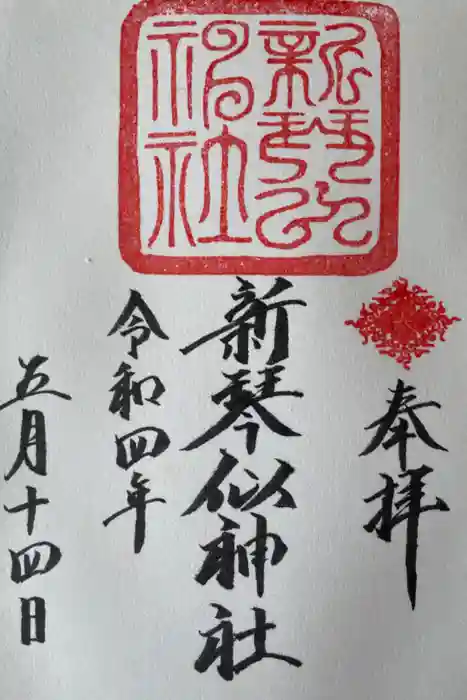 奉拝
新琴似神社
令和四年
五月十四日
新琴似
神社